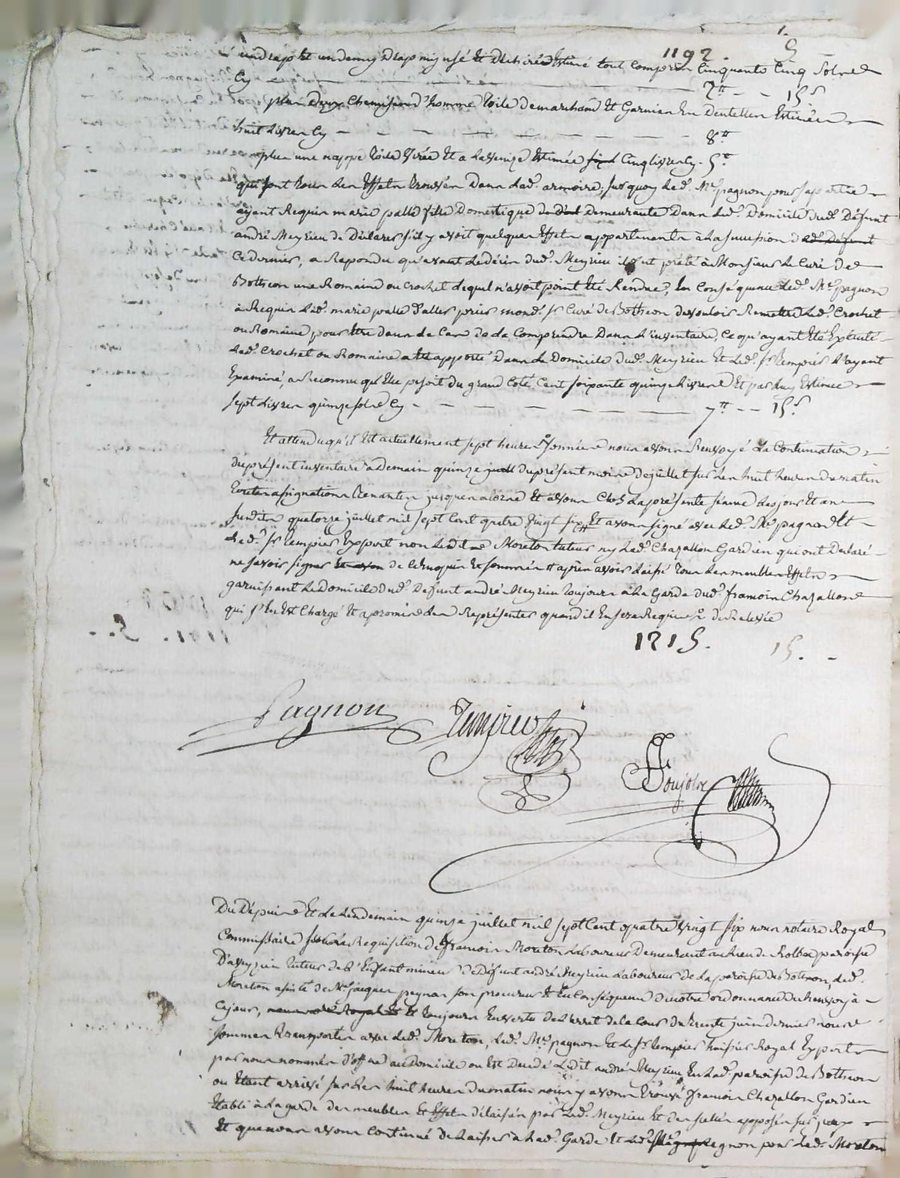 1192. 5
un drap et un demy drap my usé et dechiré Estimé tout Compris Cinquante Cinq sols
Cy — 2ᵗᵗ - - 15ˢ
plus deux Chemises d'homme toile de marchand Et Garnies En Dentelles Estimées
huit Livres Cy — 8ᵗᵗ
plus une nappe toile Estimée Cinq livres Cy. 5ᵗᵗ
qui sont tous Les Effets trouvés Dans Lad. armoire, sur quoy Led. Mᵉ pagnon pour sa partie
ayant Requis marie fille Domestique Demeurante Dans Led. Domicile dud. Défunt
andré Meyrieu de Déclarer s'il y avoit quelques Effets appartenants à La succession
Ce dernier, a Repondu qu'avant Le décès dud. Meyrieu il fut prêté à Monsieur Le Curé de
Bothéon une Romaine ou Crochet Lequel n'avoit point été Rendue, En Conséquence Led. Mᵉ pagnon
à Requis Lad. marie d'aller prier mond. sʳ Curé de Bothéon de vouloir Remettre Led. Crochet
ou Romaine pour être dans de Cas de La Comprendre Dans L'inventaire, Ce qu'ayant Eté Exécuté
Led. Crochet ou Romaine a été apporté Dans Le Domicile dud. Meyrieu Et Led. sʳ Rempier L'ayant
Examiné, a Reconnu qu'Elle pesoit du grand Coté Cent soixante quinze Livres Et par Luy Estimée
sept Livres quinze sols Cy — 7ᵗᵗ - - 15ˢ
Et attendu qu'il Est actuellement sept heures sonnées nous avons Renvoyé La Continuation
du présent inventaire à demain quinze du présent mois de juillet sur Les huit heures du matin
toutes assignations tenantes jusques alors Et avons Clos La presente séance Les jour Et an
susdits quatorze juillet mil sept Cent quatre vingt six Et avons signé avec Led. Mᵉ pagnon Et
Led. sʳ Rempier Expert non Ledit Moreton tuteur ny Led. Chazallon Gardien qui ont Declaré
ne savoir signer de Ce Enquis Et sommés Et après avoir Laissé Tous Les meubles Effets
garnissant Le domicile dud. Defunt andré Meyrieu toujours à La Garde dud. françois Chazallon
qui s'En Est Chargé Et a promis de Les Représenter quand il En sera Requis
1215. 15. -
Pagnon Rempier
Goujolx
Du Dépuis Et Le Lendemain quinze juillet mil sept Cent quatre vingt six nous notaire Royal
Commissaire Requisition de françois Moreton Laboureur Demeurant au Lieu de paroisse
D'aveyzieu tuteur de L'Enfant mineur de Défunt andré Meyrieu Laboureur de La paroisse de Bothéon, Led.
Moreton assisté de Mᵉ jacques pagnon son procureur Et En Conséquence de notre ordonnance de Renvoy à
Ce jour, Et toujours En vertu de L'arret de la Cour du trente juin dernier nous
sommes transportés avec Led. Moreton, Led. Mᵉ pagnon Et Le sʳ Rempier huissier Royal Expert
par nous nommé d'office au domicile ou Est Decedé Ledit andré Meyrieu En Lad. paroisse de Bothéon
ou Etant arrivé sur Les huit heures du matin nous y avons trouvé françois Chazallon Gardien
Etabli à La garde des meubles Et Effets delaissés par Led. Meyrieu Et des scellés apposés sur iceux
Et que nous avons Continué de Laisser à Lad. Garde Et Led. Mᵉ pagnon pour Led. Moreton